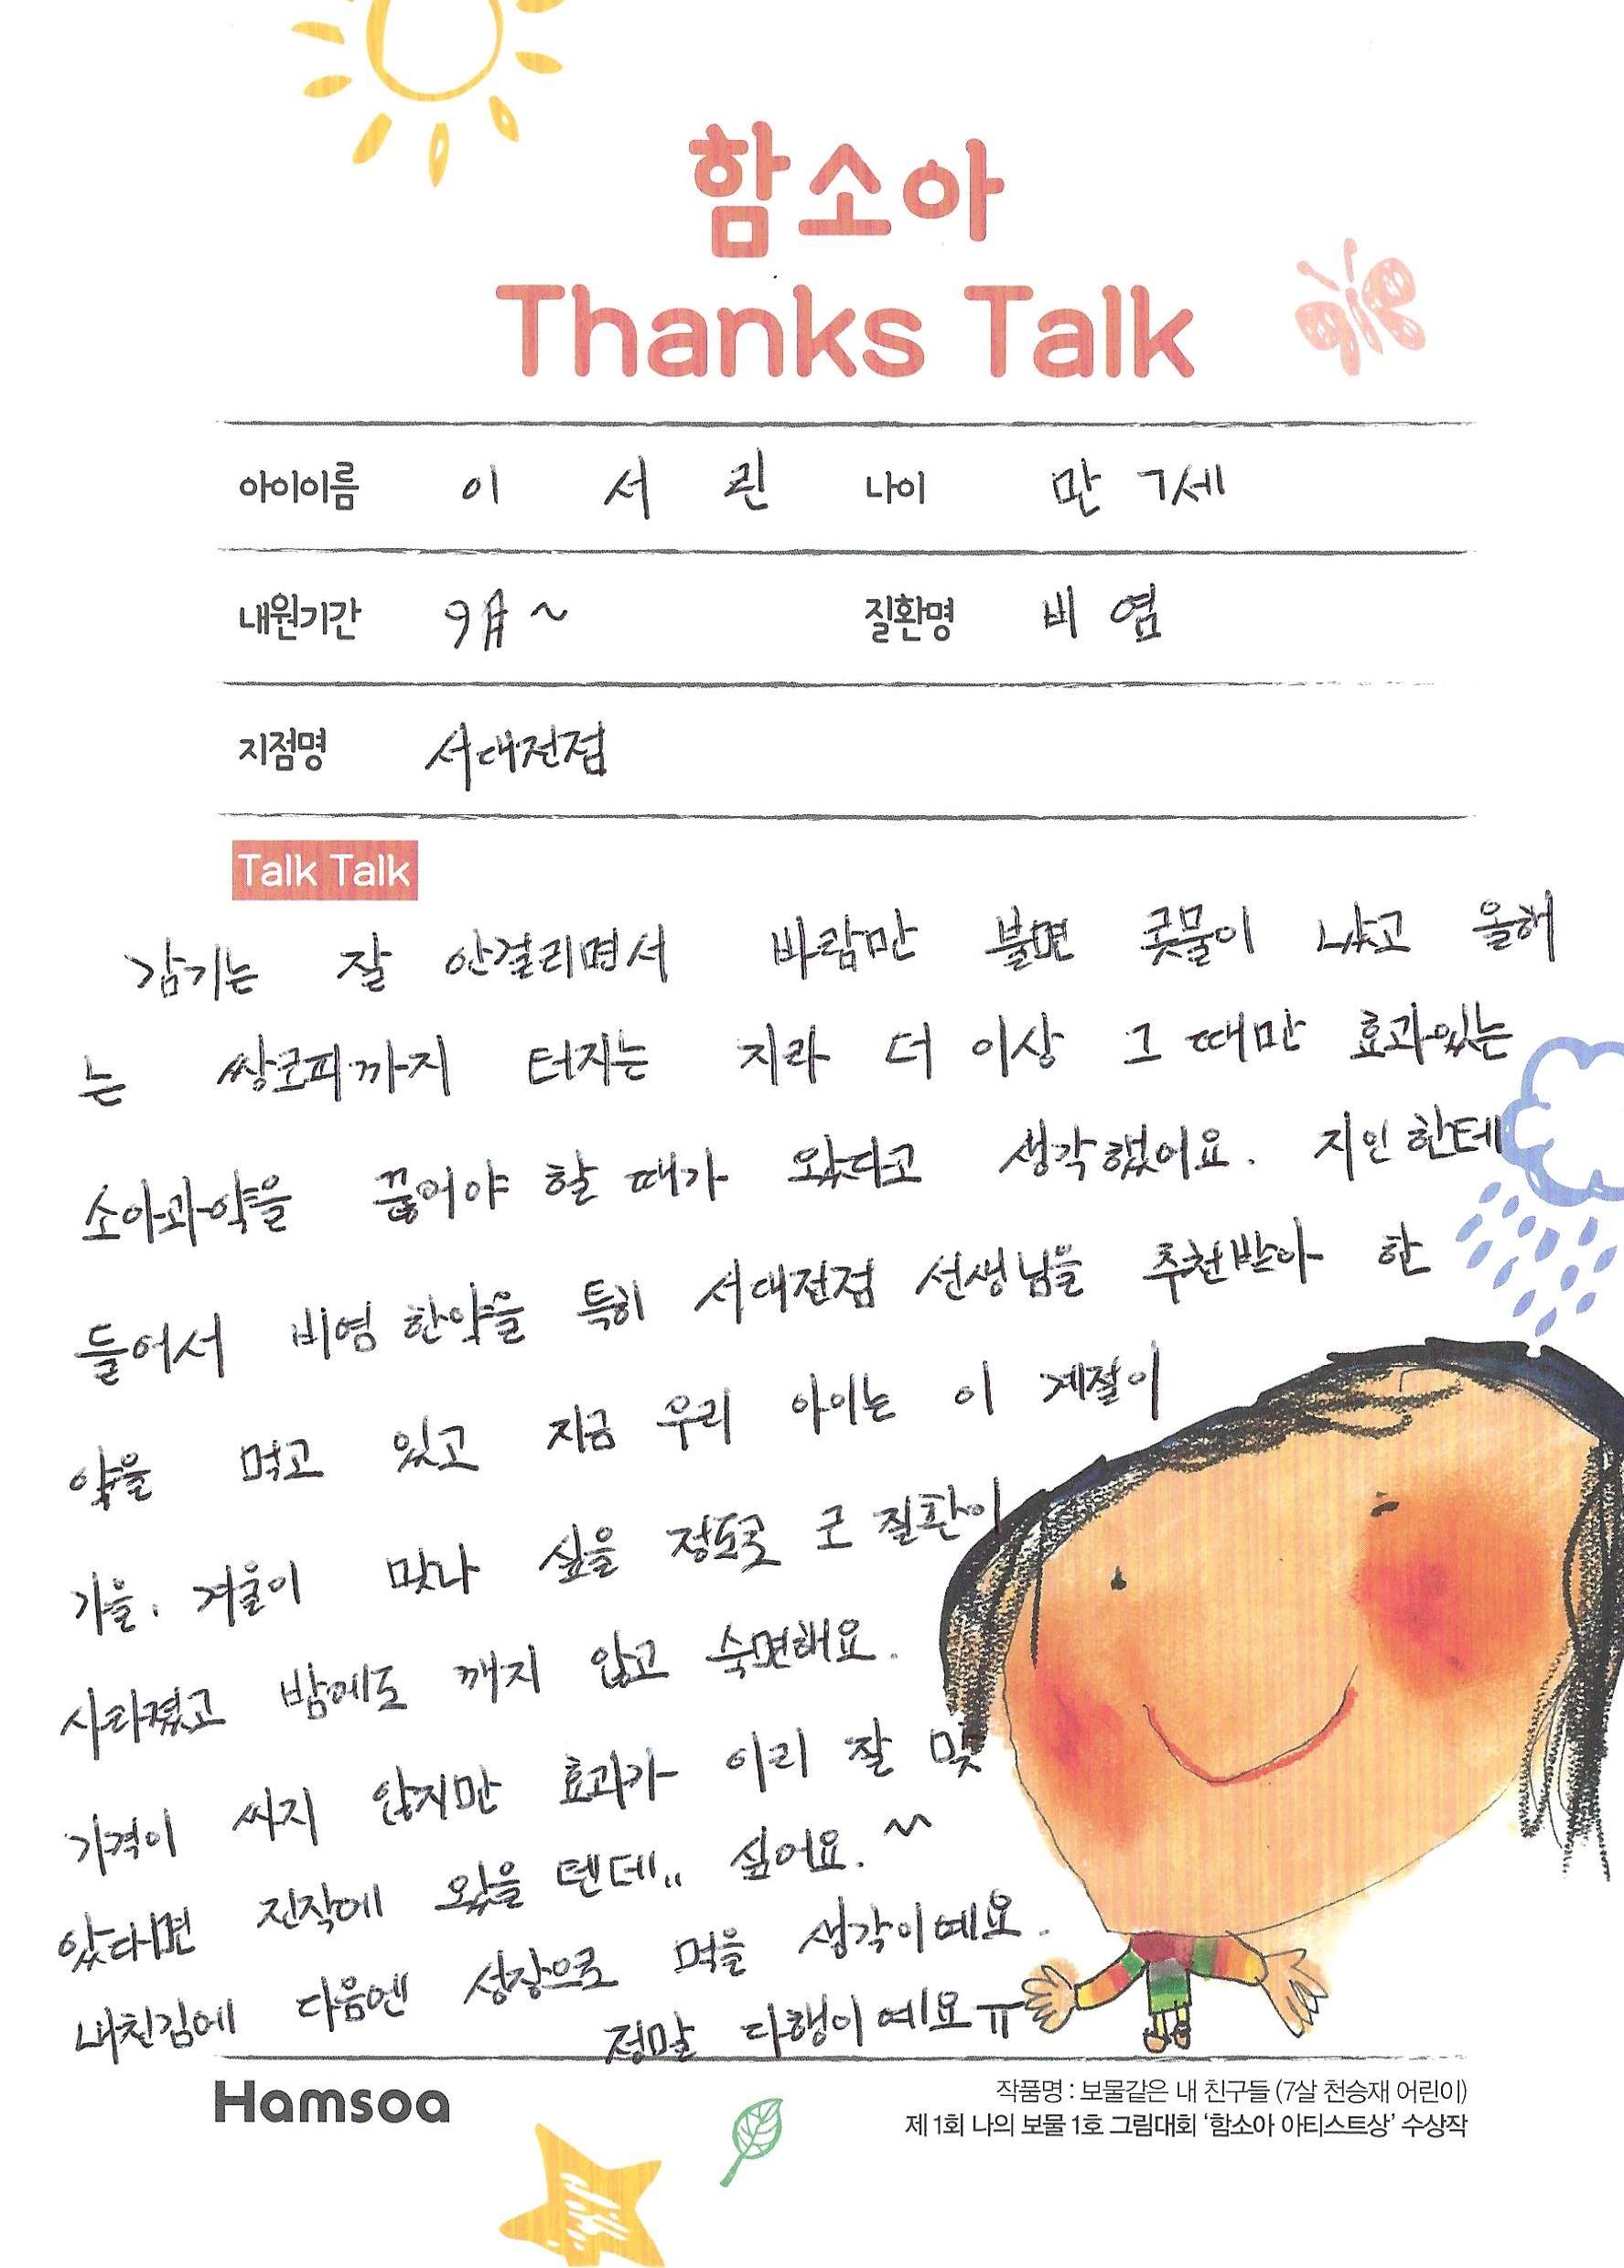 함소아
Thanks Talk
아이이름 이 서 린 나이 만 7세
내원기간 9月~ 질환명 비 염
지점명 서대전점
Talk Talk
감기는 잘 안걸리면서 바람만 불면 콧물이 나고 올해
는 쌍코피까지 터지는 지라 더 이상 그 때만 효과있는
소아과약을 끊어야 할 때가 왔다고 생각했어요. 지인한테
들어서 비염 한약을 특히 서대전점 선생님을 추천받아 한
약을 먹고 있고 지금 우리 아이는 이 계절이
가을, 겨울이 맞나 싶을 정도로 코 질환이
사라졌고 밤에도 깨지 않고 숙면해요.
가격이 싸지 않지만 효과가 이리 잘 맞
았다면 진작에 왔을 텐데.. 싶어요.~
내친김에 다음엔 성장으로 먹을 생각이예요.
정말 다행이예요ㅠ
Hamsoa
작품명 : 보물같은 내 친구들 (7살 천승재 어린이)
제 1회 나의 보물 1호 그림대회 ‘함소아 아티스트상’ 수상작